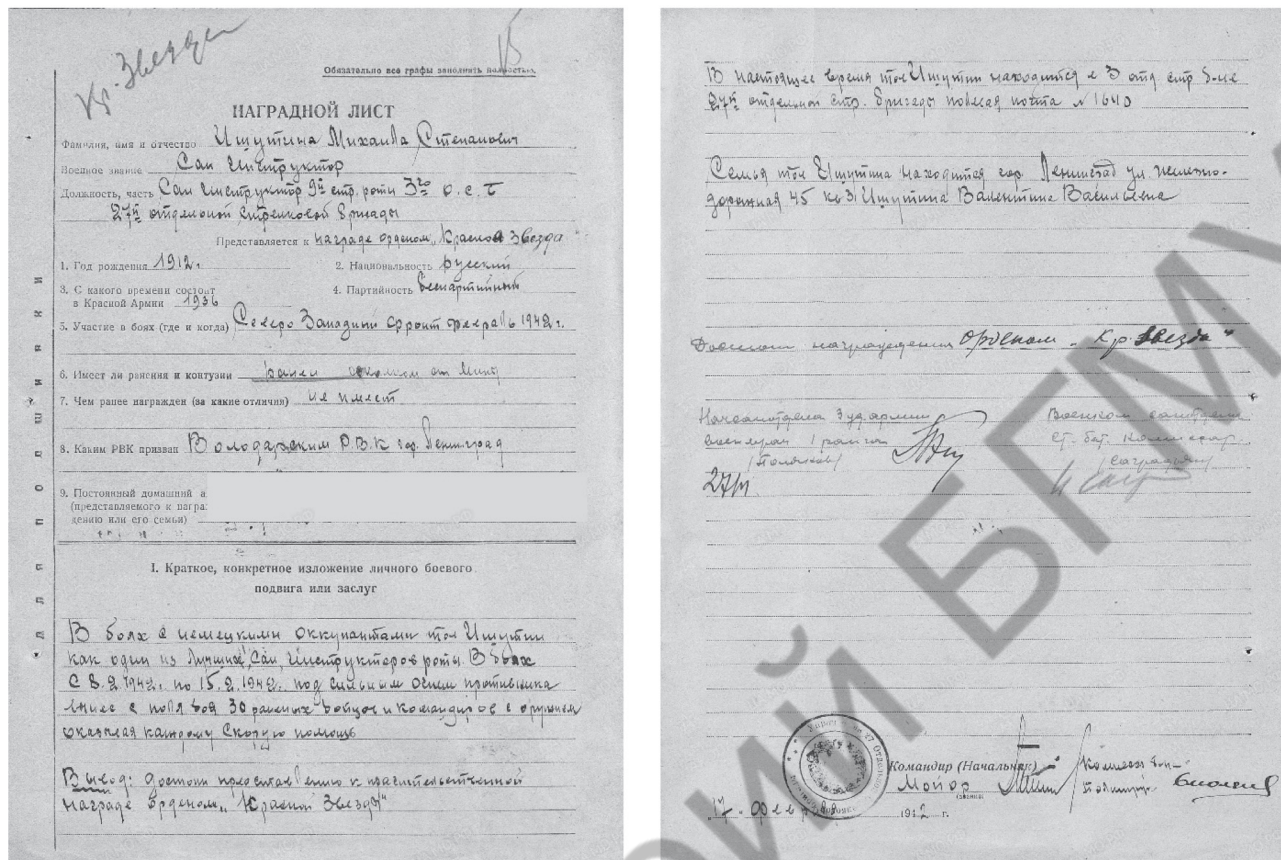 Кр. Звезда
Обязательно все графы заполнить полностью.
НАГРАДНОЙ ЛИСТ
Фамилия, имя и отчество Ишутина Михаила Степанович
Военное звание Сан Инструктор
Должность, часть Сан Инструктор 9й стр. роты 3го о.с.б
27й отдельной стрелковой бригады
Представляется к награде орденом „Красная Звезда
1. Год рождения 1912 г. 2. Национальность русский
3. С какого времени состоит
в Красной Армии 1936 4. Партийность беспартийный
5. Участие в боях (где и когда) Северо Западный фронт февраль 1942 г.
6. Имеет ли ранения и контузии ранен осколком от мины
7. Чем ранее награжден (за какие отличия) не имеет
8. Каким РВК призван Володарским Р.В.К. гор. Ленинград
9. Постоянный домашний а
(представляемого к награ
дению или его семьи)
I. Краткое, конкретное изложение личного боевого
подвига или заслуг
В боях с немецкими оккупантами тов Ишутин
как один из лучших Сан, Инструкторов роты. В боях
С 8.2.1942. по 15.2.1942. под сильным огнем противника
вынес с поля боя 30 раненых бойцов и командиров с оружием
оказывая каждому Скорую помощь
Вывод: достоин представлению к правительственной
награде Орденом „Красной Звезды"
для подшивки
В настоящее время тов Ишутин находится в 3 отд стр б-не
27й отдельной стр. бригады полевая почта № 1640
Семья тов Ишутина находится гор. Ленинград ул. железно-
дорожная 45 кв 31 Ишутина Валентина Васильевна
Достоин награждения орденом „Кр. Звезда"
Начсанотдела 3 уд армии
военврач 1 ранга
/Поляков/
27/II.
Военком санотдела
Ст. бат. комиссар
Командир (Начальник)
Майор
17 - Февр 1942 г.
БГМУ